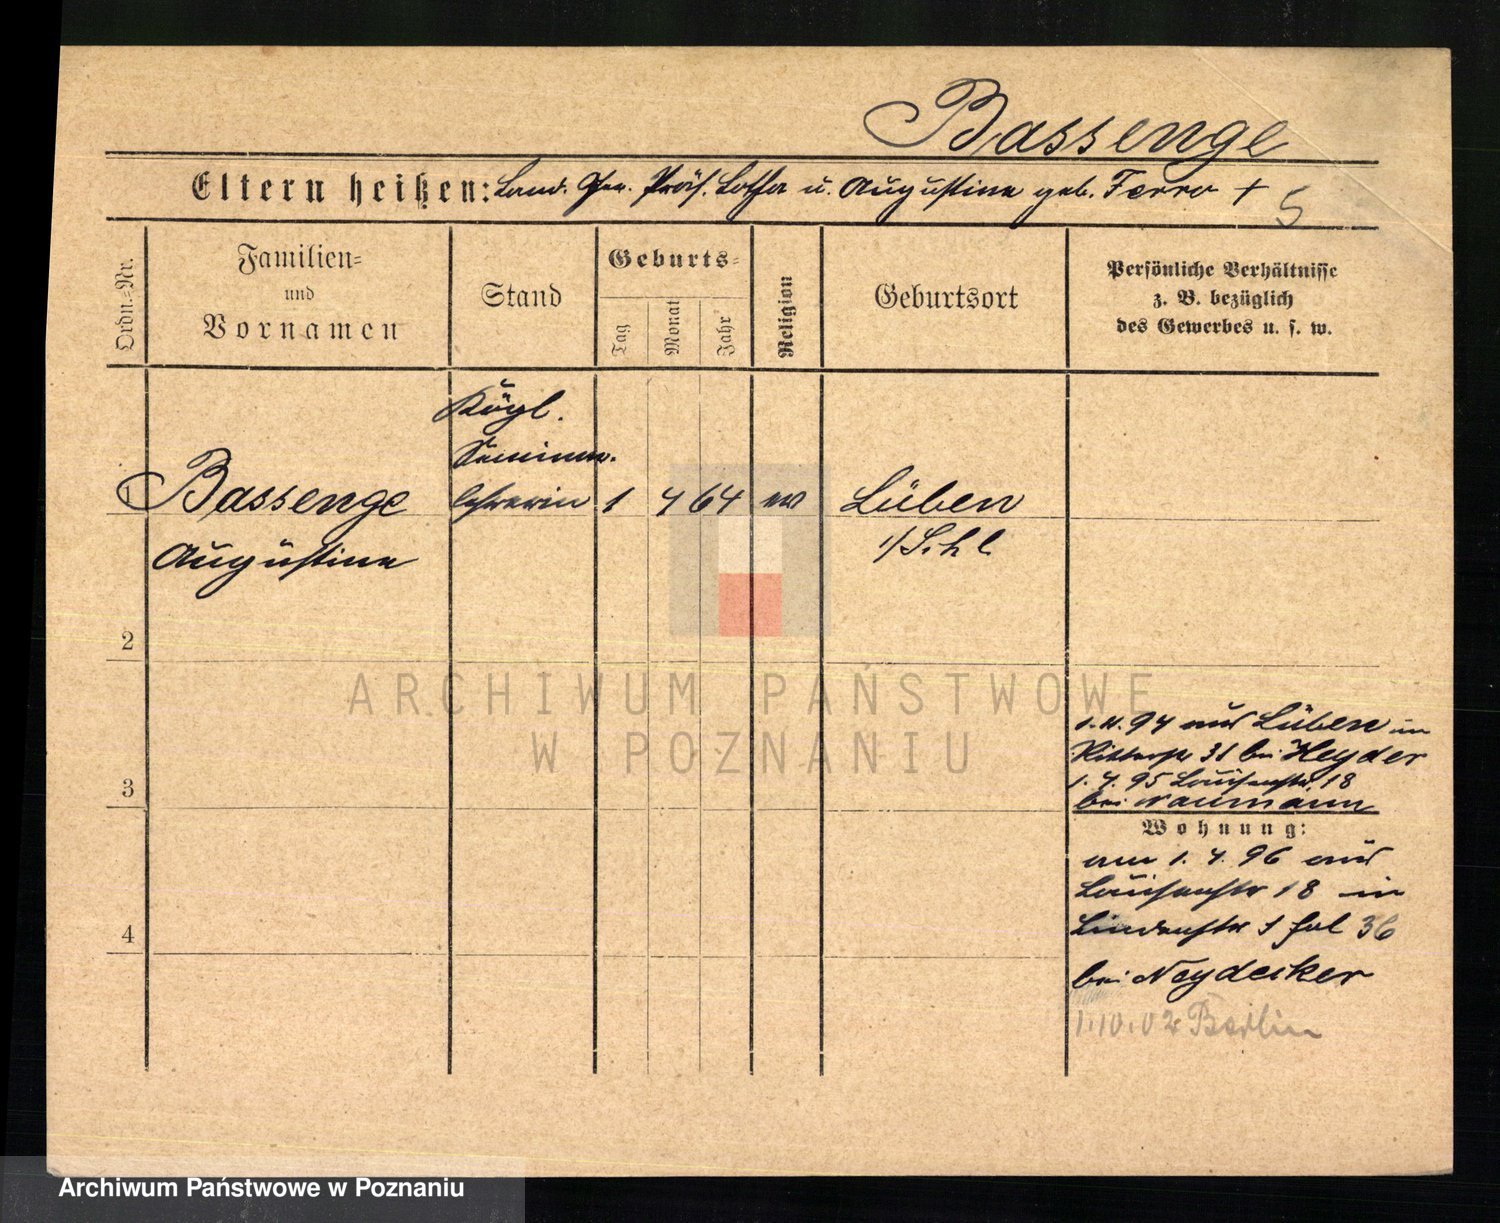 Bassenge
Eltern heißen: Land. Ger. Präs. Lothar u. Augustine geb. Ferro +
5
Ordn.-Nr.
Familien-
und
Vornamen
Stand
Geburts-
Tag
Monat
Jahr
Religion
Geburtsort
Persönliche Verhältnisse
z. B. bezüglich
des Gewerbes u. s. w.
1
Bassenge
Augustine
Kögl.
Seminar-
lehrerin
1 4 64 ev
Lüben
i/Schl.
2
3
4
1. 11. 94 aus Lüben in
Ritterstr 31 bei Heyder
1. 4. 95 Louisenstr. 18
bei Naumann
Wohnung:
am 1. 4. 96 aus
Louisenstr 18 in
Lindenstr 1 fol 36
bei Neydecker
1.10.02 Berlin
ARCHIWUM PAŃSTWOWE
W POZNANIU
Archiwum Państwowe w Poznaniu